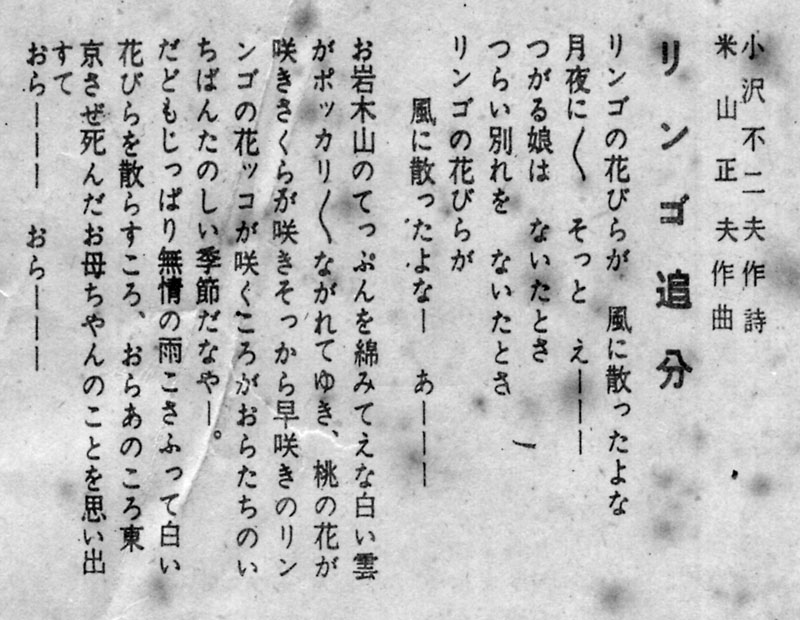 小沢不二夫作詩
米山正夫作曲
リンゴ追分
リンゴの花びらが　風に散ったよな
月夜に〱　そっと　えーーー
つがる娘は　ないたとさ
つらい別れを　ないたとさ
リンゴの花びらが
風に散ったよなー　あーーー
お岩木山のてっぷんを綿みてえな白い雲
がポッカリ〱ながれてゆき、桃の花が
咲きさくらが咲きそっから早咲きのリン
ゴの花ッコが咲くころがおらたちのい
ちばんたのしい季節だなやー。
だどもじっぱり無情の雨こさふって白い
花びらを散らすころ、おらあのころ東
京さぜ死んだお母ちゃんのことを思い出
すて
おらーーー　おらーーー